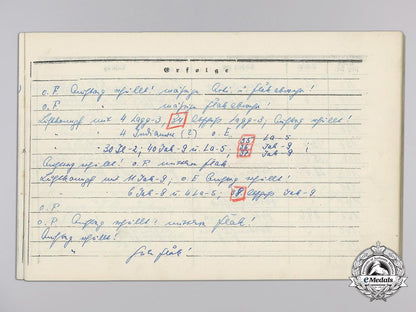 Erfolge
o. F. Auftrag erfüllt! mäßige Ari u. Flakabwehr!
o. F. mäßige Flakabwehr!
Luftkampf mit 4 Lagg-3, 24 Abschuß Lagg-3, Auftrag erfüllt!
" 4 Indianern (?) o. E. "
" 30 Il-2; 40 Jak-9 u. La-5. 25 La-5
26 Jak-9
27 Jak-9
Auftrag erfüllt! o. F. mittlere Flak!
Luftkampf mit 11 Jak-9, o. E. Auftrag erfüllt!
" 6 Jak-8 u. 4 La-5, 28 Abschuß Jak-9
o. F.
o. F. Auftrag erfüllt! mittlere Flak!
Auftrag erfüllt!
" Flak!
eMedals